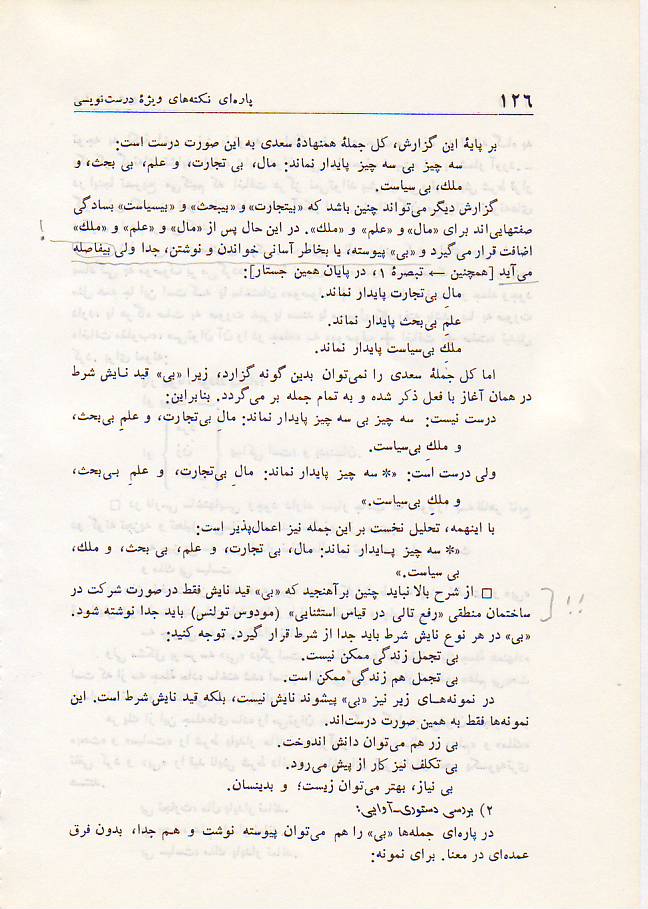 ۱۲۶ پاره‌ای نکته‌های ویژهٔ درست‌نویسی
بر پایهٔ این گزارش، کل جملهٔ همنهادهٔ سعدی به این صورت درست است:
سه چیز بی سه چیز پایدار نماند: مال، بی تجارت، و علم، بی بحث، و
ملك، بی سیاست.
گزارش دیگر می‌تواند چنین باشد که «بیتجارت» و «بیبحث» و «بیسیاست» بسادگی
صفتهایی‌اند برای «مال» و «علم» و «ملك». در این حال پس از «مال» و «علم» و «ملك»
اضافت قرار می‌گیرد و «بی» پیوسته، یا بخاطر آسانی خواندن و نوشتن، جدا ولی بیفاصله
می‌آید [همچنین ← تبصرهٔ ۱، در پایان همین جستار]:
مالِ بی‌تجارت پایدار نماند.
علمِ بی‌بحث پایدار نماند.
ملكِ بی‌سیاست پایدار نماند.
اما کل جملهٔ سعدی را نمی‌توان بدین گونه گزارد، زیرا «بی» قید نایش شرط
در همان آغاز با فعل ذکر شده و به تمام جمله بر می‌گردد. بنابراین:
درست نیست: سه چیز بی سه چیز پایدار نماند: مالِ بی‌تجارت، و علمِ بی‌بحث،
و ملكِ بی‌سیاست.
ولی درست است: «* سه چیز پایدار نماند: مالِ بی‌تجارت، و علمِ بی‌بحث،
و ملكِ بی‌سیاست.»
با اینهمه، تحلیل نخست بر این جمله نیز اعمال‌پذیر است:
«* سه چیز پایدار نماند: مال، بی تجارت، و علم، بی بحث، و ملك،
بی سیاست.»
□ از شرح بالا نباید چنین برآهنجید که «بی» قید نایش فقط در صورت شرکت در
ساختمان منطقی «رفع تالی در قیاس استثنایی» (مودوس تولنس) باید جدا نوشته شود.
«بی» در هر نوع نایش شرط باید جدا از شرط قرار گیرد. توجه کنید:
بی تجمل زندگی ممکن نیست.
بی تجمل هم زندگی ممکن است.
در نمونه‌های زیر نیز «بی» پیشوند نایش نیست، بلکه قید نایش شرط است. این
نمونه‌ها فقط به همین صورت درست‌اند.
بی زر هم می‌توان دانش اندوخت.
بی تکلف نیز کار از پیش می‌رود.
بی نیاز، بهتر می‌توان زیست؛ و بدینسان.
۲) بررسی دستوری–آوایی:
در پاره‌ای جمله‌ها «بی» را هم می‌توان پیوسته نوشت و هم جدا، بدون فرق
عمده‌ای در معنا. برای نمونه:
!
!!